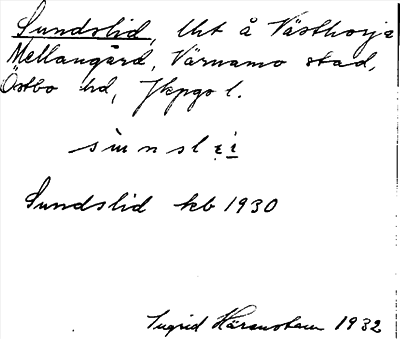 Sundslid, lht å Västhorja
Mellangård, Värnamo stad,
Östbo hd, Jkpgs l.
sùnslɛi
Sundslid kb 1930
Ingrid 1932